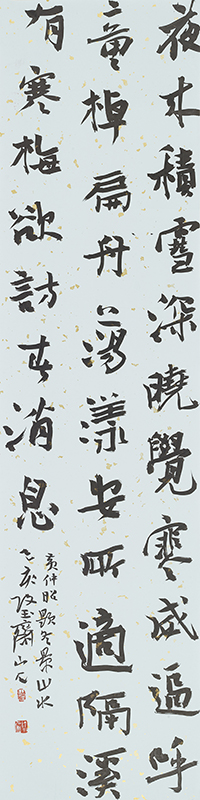 夜来積雪深曉覺寒威逼呼
童棹扁舟蕩漾安所適隔溪
有寒梅欲訪春消息
黃仲昭題冬景山水
亥 齋山人